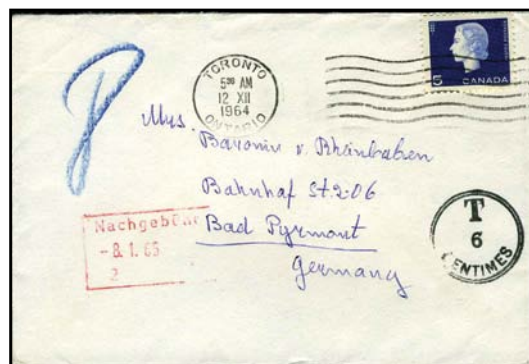 TORONTO
5 30 AM
12 XII
1964
ONTARIO
5 CANADA
Mrs.
Baronin v. Rheinbaben
Bahnhof St. 206
Bad Pyrmont
Germany
Nachgebühr
-8.1.65
2
T
6
CENTIMES